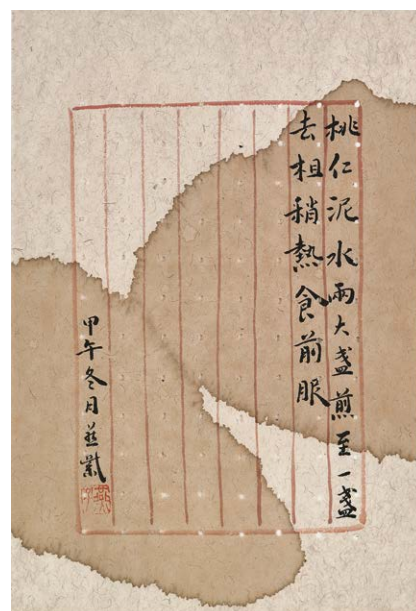 桃仁泥水兩大盞煎至一盞
去柤稍熱食前服
甲午冬月